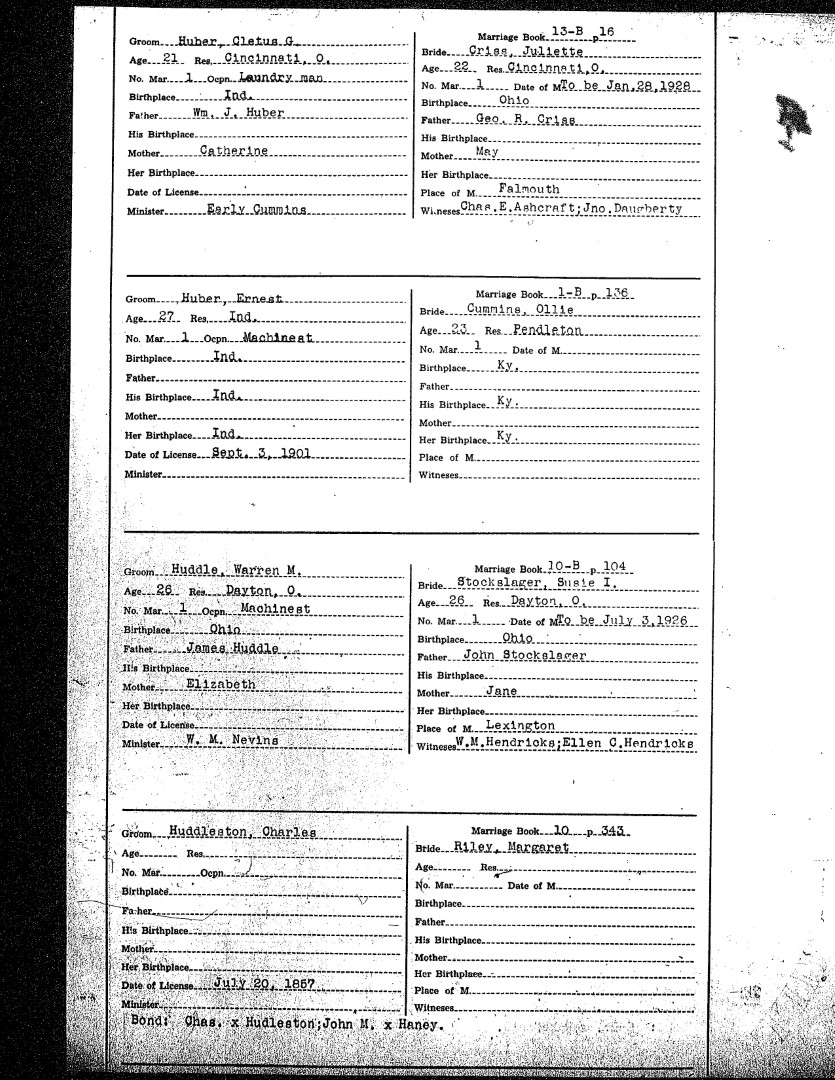 Groom Huber, Cletus G
Age 21 Res. Cincinnati, O.
No. Mar. 1 Ocpn. Laundry man
Birthplace Ind.
Father Wm. J. Huber
His Birthplace
Mother Catherine
Her Birthplace
Date of License
Minister Early Cummins
Marriage Book 13-B p 16
Bride Criss, Juliette
Age 22 Res. Cincinnati, O.
No. Mar. 1 Date of M To be Jan. 28, 1928
Birthplace Ohio
Father Geo. R. Criss
His Birthplace
Mother May
Her Birthplace
Place of M. Falmouth
Witnesses Chas. E. Ashcraft; Jno. Daugherty
Groom Huber, Ernest
Age 27 Res. Ind.
No. Mar. 1 Ocpn. Machinest
Birthplace Ind.
Father
His Birthplace Ind.
Mother
Her Birthplace Ind.
Date of License Sept. 3, 1901
Minister
Marriage Book 1-B p 136
Bride Cummins, Ollie
Age 23 Res Pendleton
No. Mar. 1 Date of M.
Birthplace Ky.
Father
His Birthplace Ky.
Mother
Her Birthplace Ky.
Place of M.
Witnesses
Groom Huddle, Warren M.
Age 26 Res. Dayton, O.
No. Mar. 1 Ocpn. Machinest
Birthplace Ohio
Father James Huddle
His Birthplace
Mother Elizabeth
Her Birthplace
Date of License
Minister W. M. Nevins
Marriage Book 10-B p 104
Bride Stockslager, Susie I.
Age 26 Res. Dayton, O.
No. Mar. 1 Date of M To be July 3, 1926
Birthplace Ohio
Father John Stockslager
His Birthplace
Mother Jane
Her Birthplace
Place of M. Lexington
Witnesses W.M.Hendricks;Ellen C.Hendricks
Groom Huddleston, Charles
Age Res.
No. Mar. Ocpn.
Birthplace
Father
His Birthplace
Mother
Her Birthplace
Date of License July 20, 1857
Minister
Bond: Chas. x Hudleston;John M. x Haney.
Marriage Book 10 p 343
Bride Riley, Margaret
Age Res.
No. Mar. Date of M.
Birthplace
Father
His Birthplace
Mother
Her Birthplace
Place of M.
Witnesses